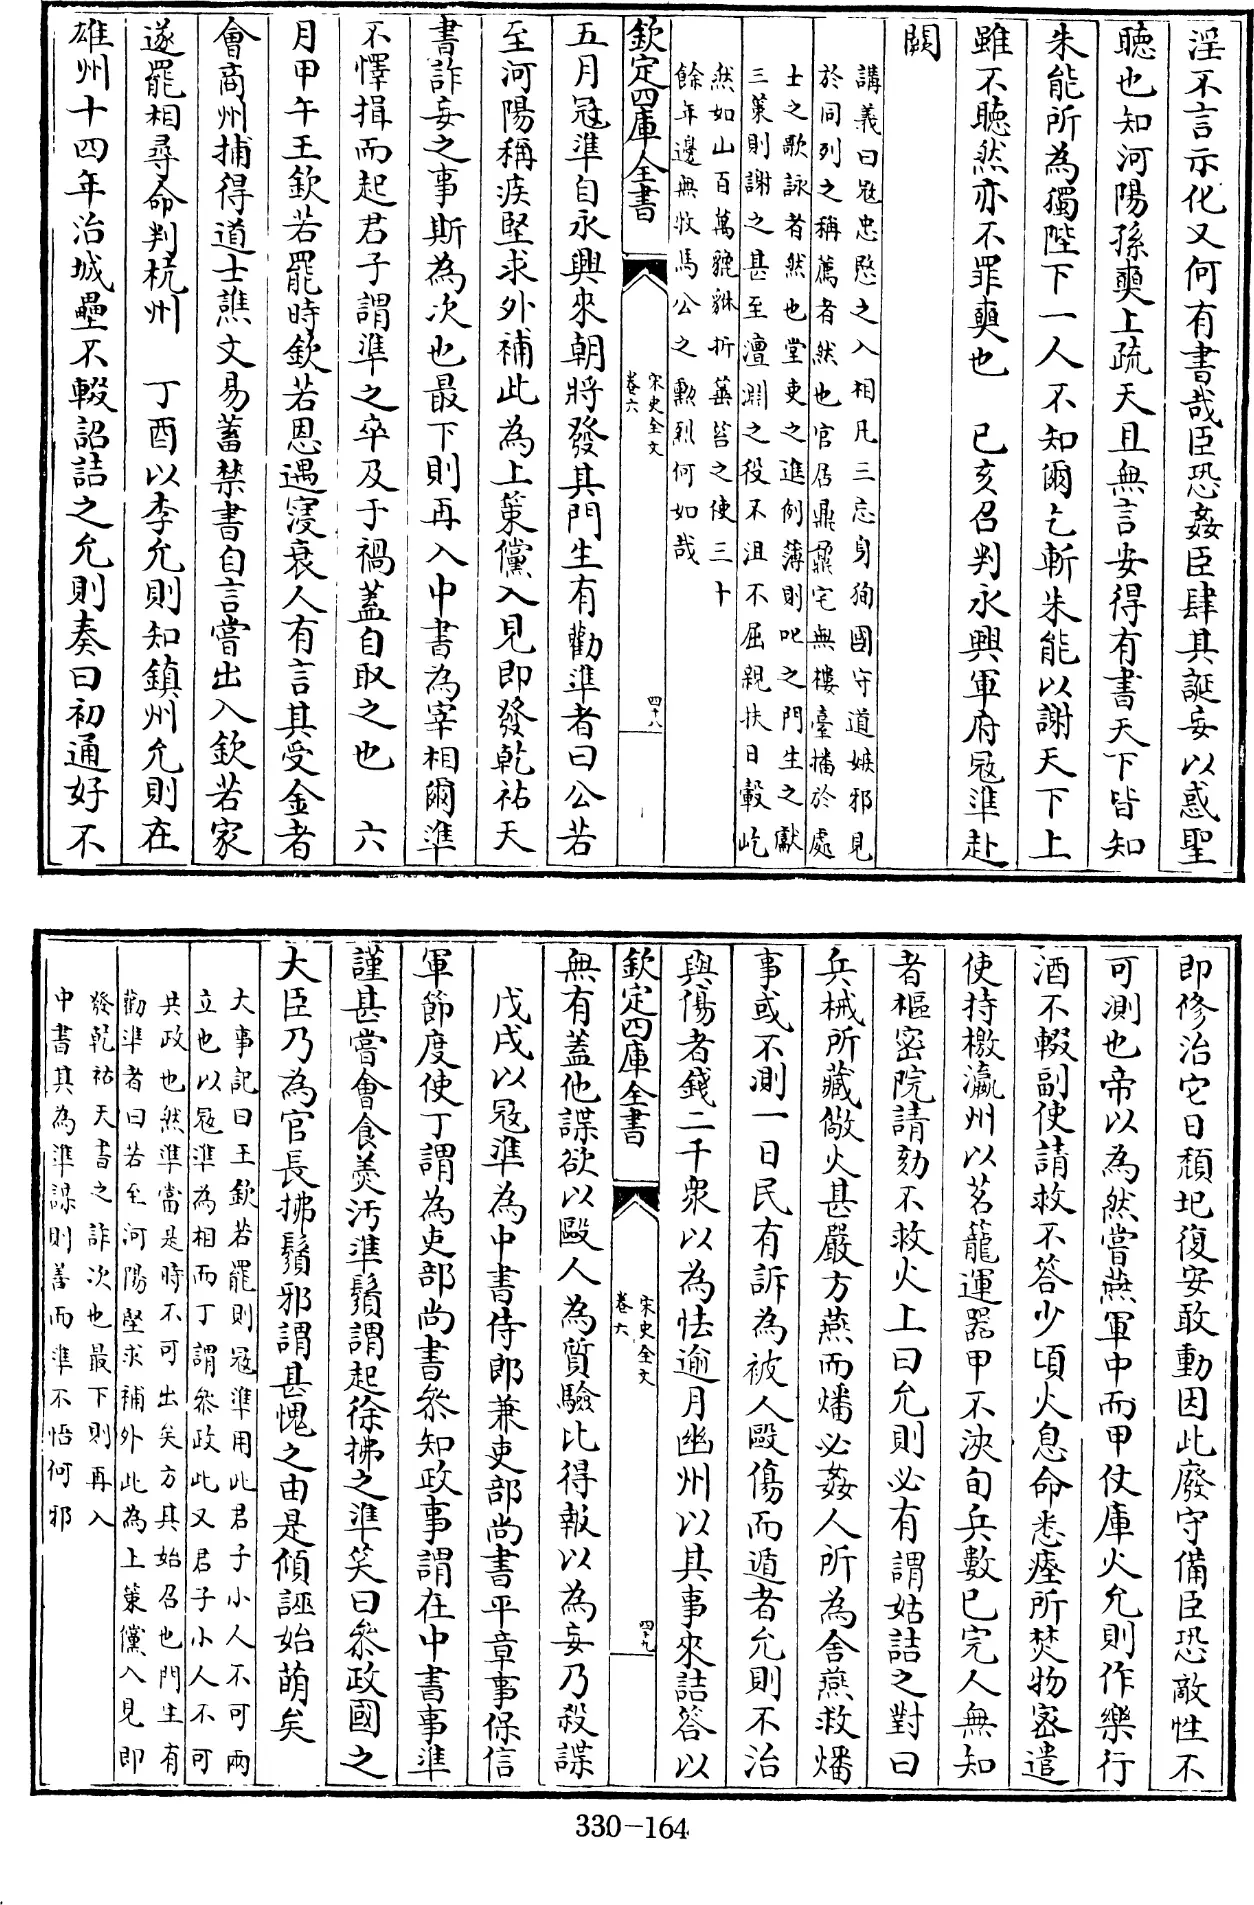 淫不言示化又何有書哉臣恐姦臣肆其誕妄以惑聖
聽也知河陽孫奭上疏天且無言安得有書天下皆知
朱能所為獨陛下一人不知爾乞斬朱能以謝天下上
雖不聴然亦不罪奭也　己亥召判永興軍府冦準赴
闕
講義曰冦忠愍之入相凡三忘身徇國守道嫉邪見
於同列之稱薦者然也官居鼎鼐宅無樓臺播於處
士之歌詠者然也堂吏之進例薄則叱之門生之獻
三策則謝之甚至澶淵之役不沮不屈親扶日轂屹
然如山百萬貔貅折箠笞之使三十
餘年邊無牧馬公之勲烈何如哉
欽定四庫全書
宋史全文
卷六
四十八
五月冦準自永興來朝將發其門生有勸準者曰公若
至河陽稱疾堅求外補此為上策儻入見即發乾祐天
書詐妄之事斯為次也最下則再入中書為宰相爾準
不懌揖而起君子謂準之卒及于禍蓋自取之也　六
月甲午王欽若罷時欽若恩遇寖衰人有言其受金者
會商州捕得道士譙文易蓄禁書自言嘗出入欽若家
遂罷相尋命判杭州　丁酉以李允則知鎮州允則在
雄州十四年治城壘不輟詔詰之允則奏曰初通好不
即修治它日頹圯復安敢動因此廢守備臣恐敵性不
可測也帝以為然嘗燕軍中而甲仗庫火允則作樂行
酒不輟副使請救不答少頃火息命悉瘞所焚物密遣
使持檄瀛州以茗籠運器甲不浹旬兵數已完人無知
者樞密院請劾不救火上曰允則必有謂姑詰之對曰
兵械所藏儆火甚嚴方燕而燔必姦人所為舍燕救燔
事或不測一日民有訴為被人毆傷而遁者允則不治
與傷者錢二千衆以為怯逾月幽州以其事來詰答以
欽定四庫全書
宋史全文
卷六
四十九
無有蓋他諜欲以毆人為質驗比得報以為妄乃殺諜
戊戌以冦準為中書侍郎兼吏部尚書平章事保信
軍節度使丁謂為吏部尚書叅知政事謂在中書事準
謹甚嘗會食羮汚準鬚謂起徐拂之準笑曰叅政國之
大臣乃為官長拂鬚邪謂甚愧之由是傾誣始萌矣
大事記曰王欽若罷則冦準用此君子小人不可兩
立也以冦準為相而丁謂叅政此又君子小人不可
共政也然準當是時不可出矣方其始召也門生有
勸準者曰若至河陽堅求補外此為上策儻入見即
發乾祐天書之詐次也最下則再入
中書其為準謀則善而準不悟何邪
330-164